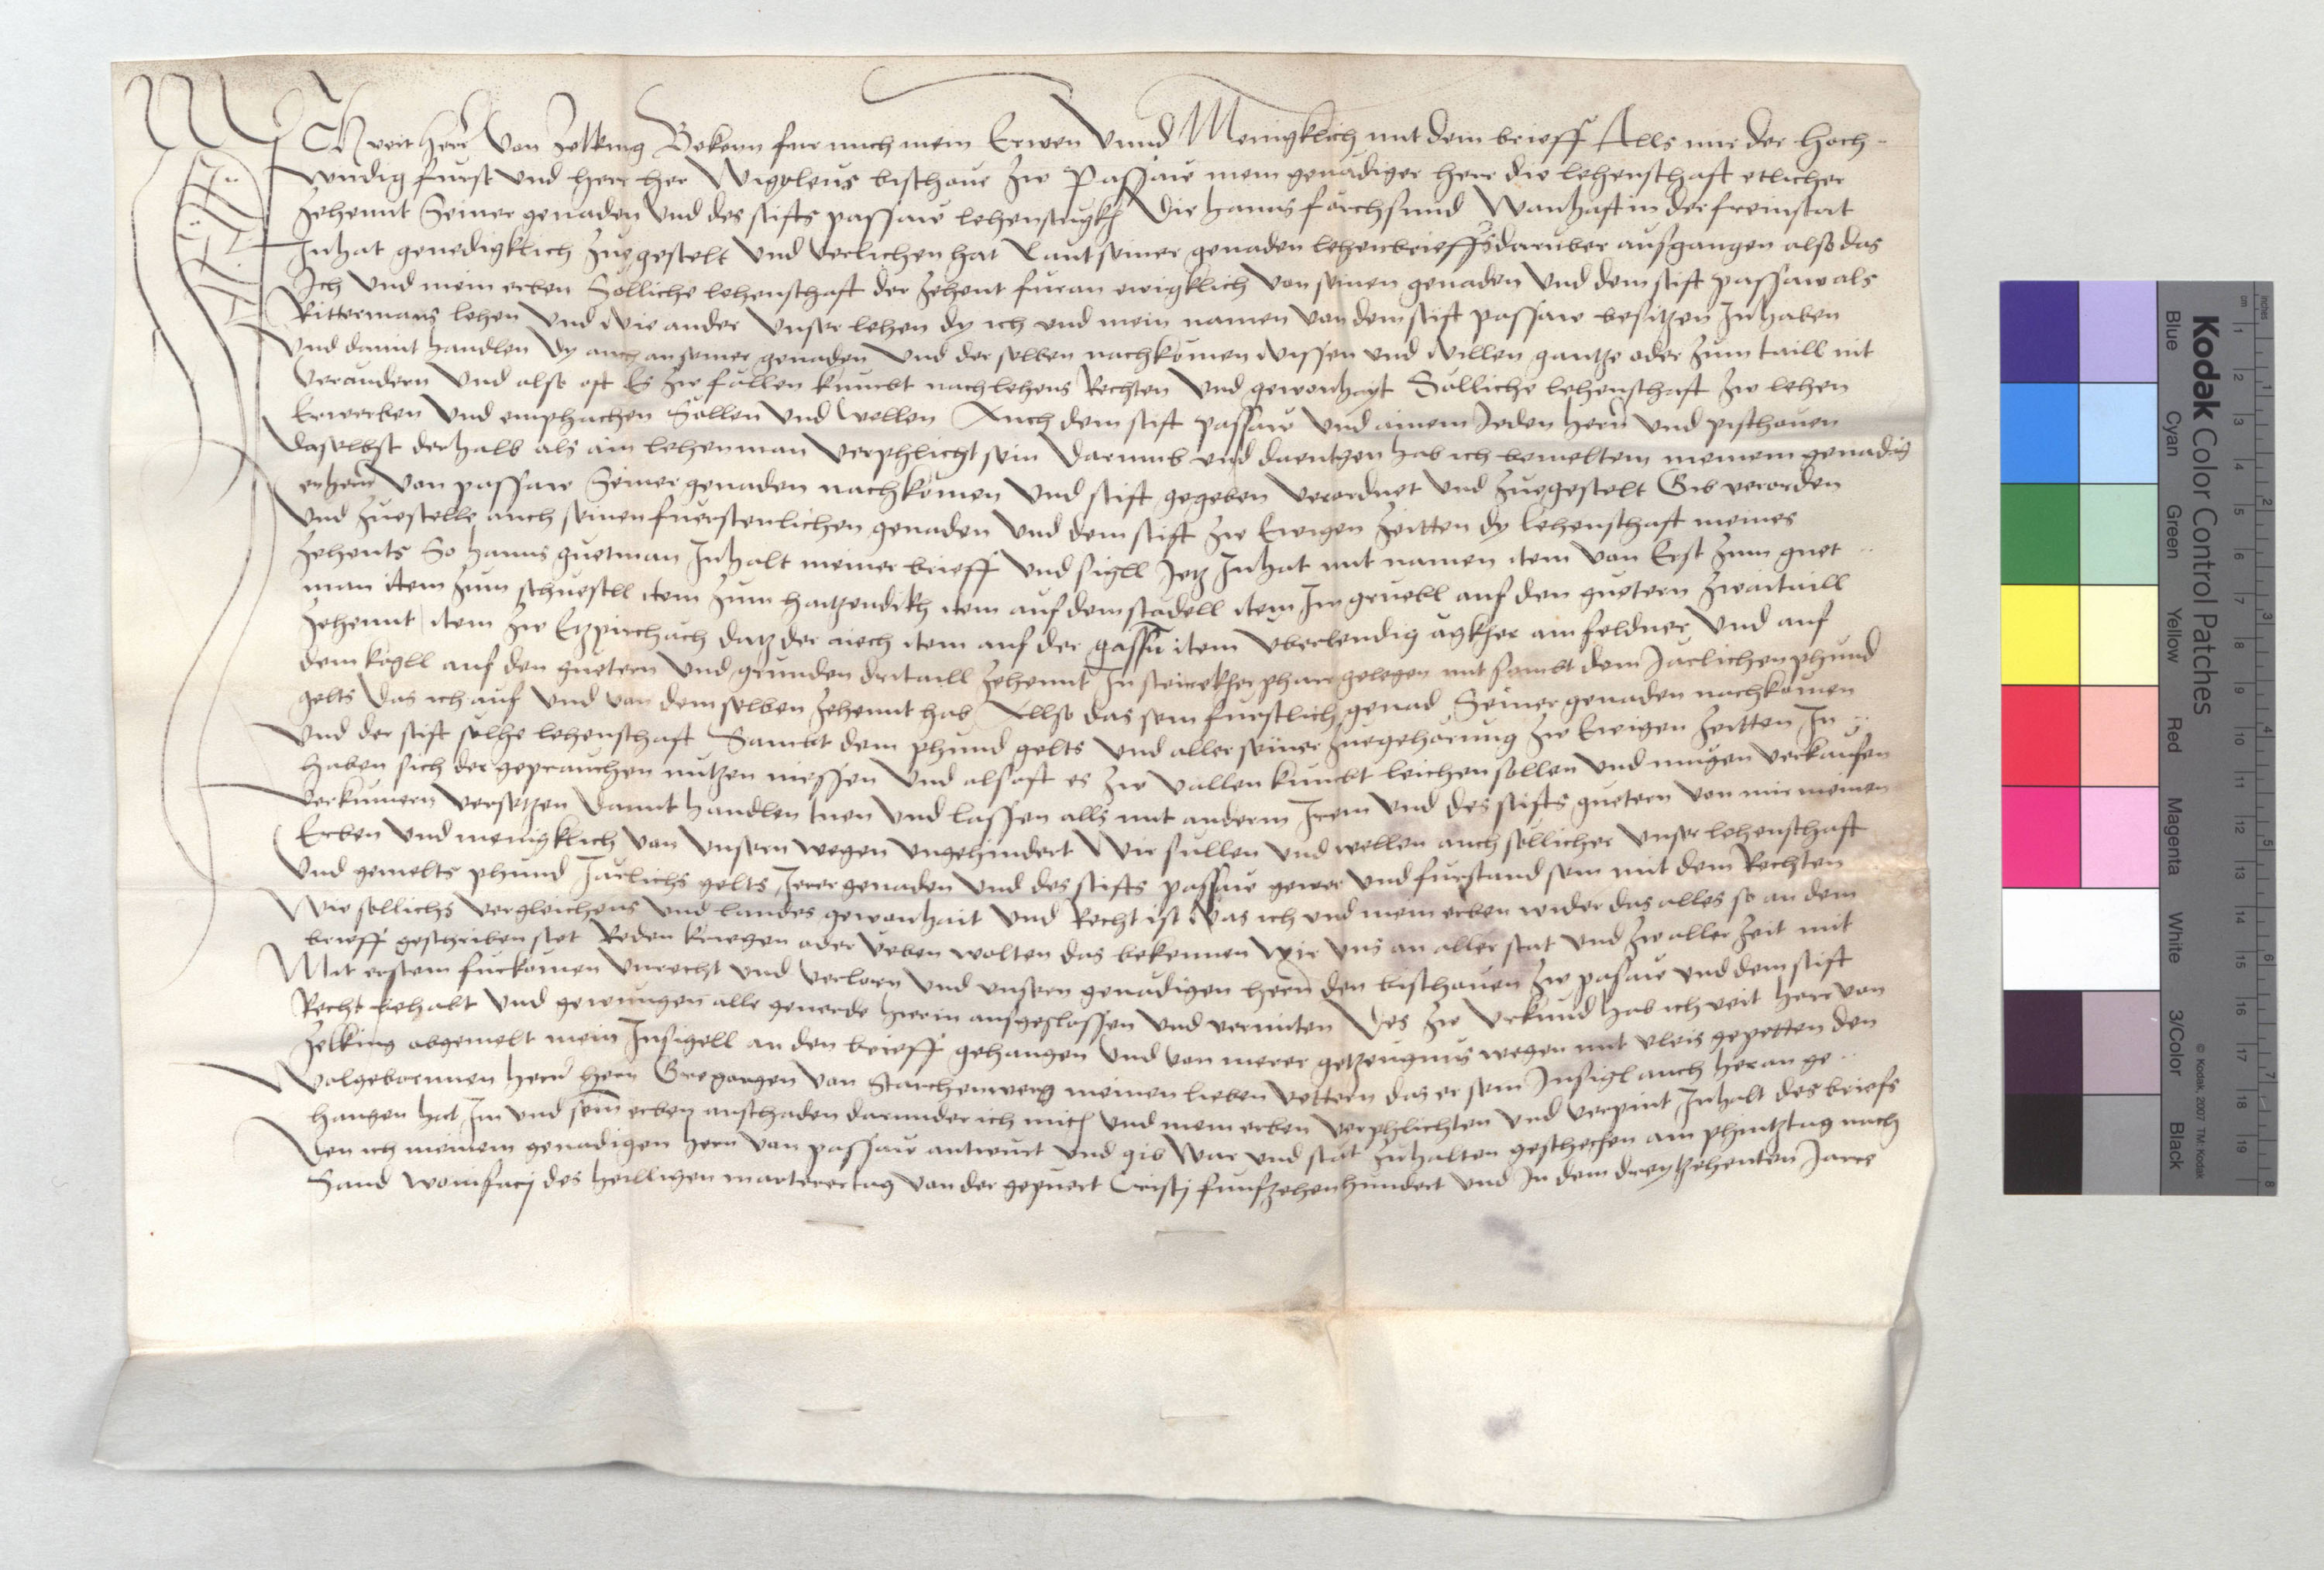 ICh veit herr von Zelking Bekenn fur mich mein Erwen vnnd Menigklich mit dem brieff Alls mir der Hoch-
wirdig furst vnd herr her Wigoleus bischoue zw Passaw mein genadiger herr die lehenschaft etlicher
Zehennt Seiner genaden vnd des stifts passaw lehenstugkh Die hanns forchsund Wanhaft in der freinstat
Inhat genedigklich Zuegestelt vnd verlichen hat Laut seiner genaden lehenbrieffs daruber ausgangen also das
Ich vnd mein erben Solliche lehenschaft der Zehent furan ewigklich von seinen genaden vnd dem stift passaw als
Rittermans lehen vnd wie ander vnser lehen dy ich vnd mein namen von dem stift passaw besitzen Inhaben
vnd damit handlen dy auch an seiner genaden vnd der selben nachkomen wissen vnd willen gantz oder zum taill nit
verandern vnd also oft Es zw fallen kumbt nach lehens Rechten vnd gewonhayt Solliche lehenschaft zw lehen
Erwerben vnd emphachen Sollen vnd wellen Auch dem stift passaw vnd ainem Jeden hern vnd pischouen
daselbst derhalb als ain lehenman verphlicht sein darumb vnd daentgen hab ich bemeltem meinem genadig
en hern von passaw Seiner genaden nachkomen vnd stift gegeben verordnet vnd zuegestelt Gib verorden
vnd zuestelle auch seinen fuerstenlichen genaden vnd dem stift zw Ewigen Zeitten dy lehenschaft meines
Zehents So hanns guetman Inhalt meiner brieff vnd sigll Jetz Inhat mit namen item von Erst zum guet
man item zum schuestll item zum hartzendikh item auf dem stadell item Im gruebl auf den guetern zwaitaill
Zehennt item zw Etzpirchach datz der aich item auf der gassn item vberlendig agkher am feldner vnd auf
dem kogll auf den guetern vnd grunden dritaill Zehennt In steirekher pharr gelegen mit sambt dem Jarlichen phund
gelts das ich auf vnd von dem selben Zehennt hab Allso das sein furstlich genad Seiner genaden nachkomen
vnd der stift solhe lehenschaft Sambt dem phund gelts vnd aller seiner zuegehorung zw Ewigen Zeitten In
haben sich der geprauchen nutzen niessen vnd alsoft es zw vallen kumbt leichen sollen vnd mugen verkaufen
verkumern versetzen damit handlen tuen vnd lassen alls mit anderm Irem vnd des stifts guetern von mir meinen
Erben vnd menigklich von vnsern wegen vngehindert Wir sullen vnd wellen auch sollicher vnser lehenschaft
vnd gemelts phund Jarlichs gelts Irer genaden vnd des stifts passaw gewer vnd furstand sein mit dem Rechten
Wie sollichs vergleichens vnd landes gewonhait vnd Recht ist Was ich vnd mein erben wider das alles so an dem
brieff geschriben stet Reden kriegen oder veben wolten das bekennen wir vns an aller stat vnd zw aller zeit mit
Mit erstem furkomen vnrecht vnd verlorn vnd vnsern genadigen hern den bischouen zw pasaw vnd dem stift
Recht behabt vnd gewungen alle geuerde hierin ausgeslossen vnd vermiten Des zw vrkund hab ich veit herr von
Zelking obgemelt mein Insigell an den brieff gehangen vnd von merer getzeugnus wegen mit vleis gepetten den
Wolgebornnen hern hern Gregorgen von Starchenwerg meinen lieben vettern das er sein Insigl auch heran ge
hangen hat Im vnd sein erben anschaden darunder ich mich vnd mein erben verphlichten vnd verpint Inhalt des briefs
Den ich meinem genadigen hern von passaw antwurt vnd gib War vnd stat zuhalten geschechen am phintztag nach
Sand wonifacy des heilligen marterertag von der gepuert Cristj funfzehenhundert vnd In dem dreytzehenten Jare
Kodak Color Control Patches
Blue Cyan Green Yellow Red Magenta White 3/Color Black
© Kodak, 2007 TM: Kodak
inches 1 2 3 4 5 6 7 8
cm 1 2 3 4 5 6 7 8 9 10 11 12 13 14 15 16 17 18 19